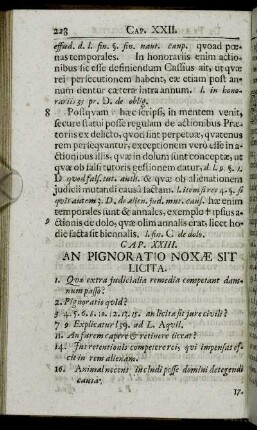 228 CAP. XXII.
effud. d. l. fin. §. fin. naut. caup. quoad pœ-
nas temporales. In honorariis enim actio-
nibus sic esse definiendum Cassius ait, ut quæ
rei persecutionem habent, eæ etiam post an-
num dentur cæteræ intra annum. l. in hono-
rariis 35 pr. D. de oblig.
8 Postquam hæc scripsi, in mentem venit,
secure statui posse regulam de actionibus Præ-
toriis ex delicto, quod sint perpetuæ, quatenus
rem persequantur, exceptionem verò esse in a-
ctionibus illis, quæ in dolum sunt conceptæ, ut
quæ ob falsi tutoris gestionem datur, d. l. 9. §. 1.
D. quod fals. tut. auth. & quæ ob alienationem
judicii mutandi causâ factam. l. item si res 4. §. si
quis autem 3. D. de alien. jud. mut. caus. hæ enim
temporales sunt & annales, exemplo † ipsius a-
9 ctionis de dolo, quæ olim annalis erat, licet ho-
die facta sit biennalis. l. fin. C. de dolo.
CAP. XXIII.
AN PIGNORATIO NOXÆ SIT
LICITA.
1. Quæ extra judicialia remedia competant dam-
num passo?
2. Pignoratio quid?
3. 4. 5. 6. 8. 10. 12. 13. 15. an licita sit jure civili?
7 9 Explicatur l 39. ad L. Aquil.
11. An farem capere & retinere liceat?
14. Jus retentionis competere rei, qui impensas fe-
cit in rem alienam.
16. Animal nocens includi posse domini detegendi
causa.
17.